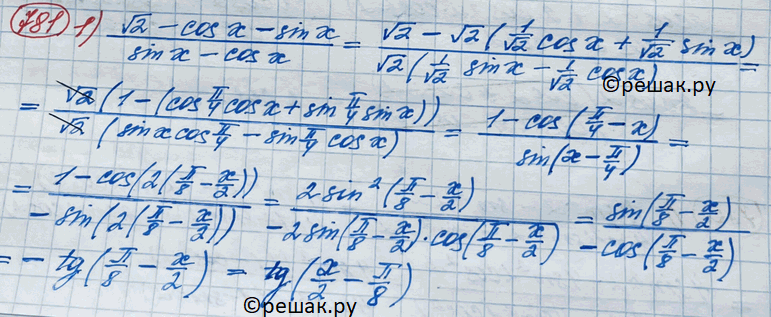 781 1) (√2 - cos x - sin x)/(sin x - cos x) = (√2 - √2(1/√2 cos x + 1/√2 sin x))/(√2(1/√2 sin x - 1/√2 cos x)) =
©решак.ру
= (√2(1 - (cos π/4 cos x + sin π/4 sin x)))/(√2(sin x cos π/4 - sin π/4 cos x)) = (1 - cos(π/4 - x))/(sin(x - π/4)) =
= (1 - cos(2(π/8 - x/2)))/(-sin(2(π/8 - x/2))) = (2 sin²(π/8 - x/2))/(-2 sin(π/8 - x/2)·cos(π/8 - x/2)) = (sin(π/8 - x/2))/(-cos(π/8 - x/2))
= - tg(π/8 - x/2) = tg(x/2 - π/8)
©решак.ру